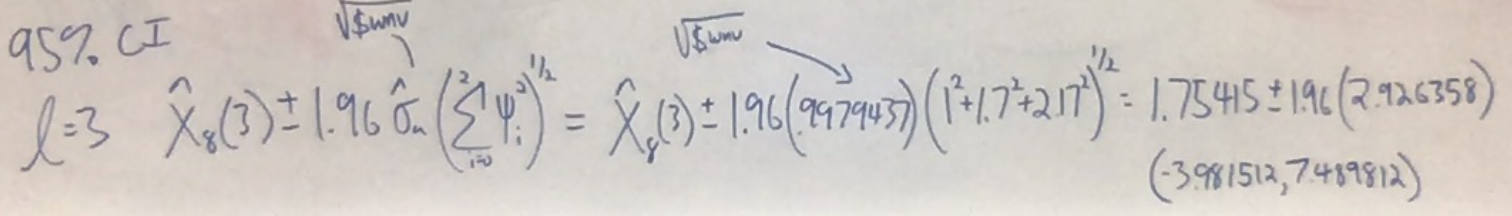 95% CI √$wnv √$wnv
l=3 X̂₈(3) ± 1.96 σ̂ₐ (∑²ᵢ₌₀ ψᵢ²)^1/2 = X̂₈(3) ± 1.96(.9979437)(1²+1.7²+2.17²)^1/2 = 1.75415 ± 1.96(2.926358)
(-3.981512, 7.489812)